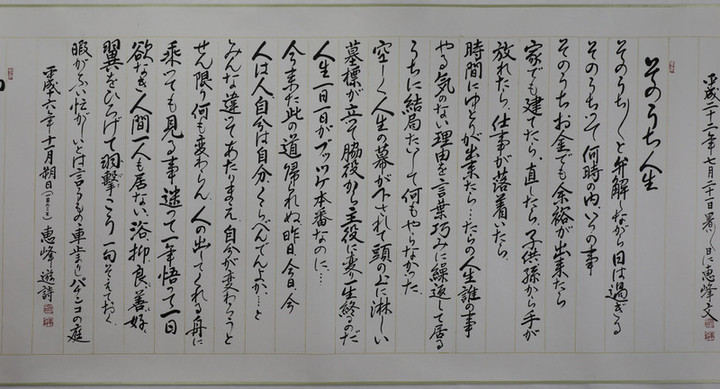 平成二十二年七月二十一日暑い日に 恵峰文
そのうち人生
そのうち〱と弁解しながら日は過ぎる
そのうちいつて何時の内いつの事
そのうちお金でも余裕が出来たら
家でも建てたら、直したら、子供孫から手が
放れたら、仕事が落着いたら、
時間にゆとりが出来たら…たらの人生誰の事
やる気のない理由を言葉巧みに繰返して居る
うちに結局たいして何もやらなかった
空しく人生の幕が下されて頭の上に淋しい
墓標が立つて脇役から主役に一生終るのだ
人生一日一日がブッツケ本番なのに…
今来た此の道帰られぬ昨日、今日、今
人は人自分は自分、くらべんでんよか…と
みんな違ってあたりまえ、自分が変わろうと
せん限り何も変わらん、人の出してくれる舟に
乗っても見る事 迷って一年悟って一日
欲なき人間一人も居ない、浴、抑、良、善、好、
翼をひろげて羽撃こう 一句そえておく、
暇がない忙がしいとは言うもの車止まりしパチンコの庭
平成六年十一月朔日 恵峰遊詩